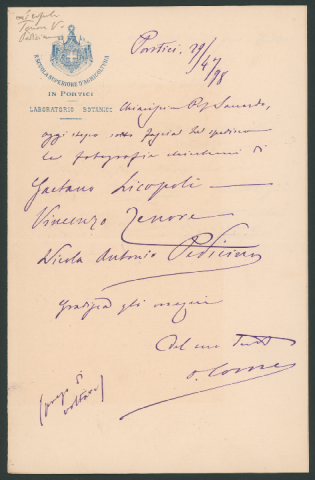 Licopoli
Tenore V.
Pedicino
R. SCUOLA SUPERIORE D'AGRICOLTURA
IN PORTICI
LABORATORIO BOTANICO
Portici. 29/4/98
Chiarissimo Prof Saccardo,
oggi stesso sotto fascia Le spedisco
le fotografie chiestemi di
Gaetano Licopoli
Vincenzo Tenore
Nicola Antonio Pedicino
Gradisca gli ossequi
Del suo
O. Comes
(prego di
voltare)